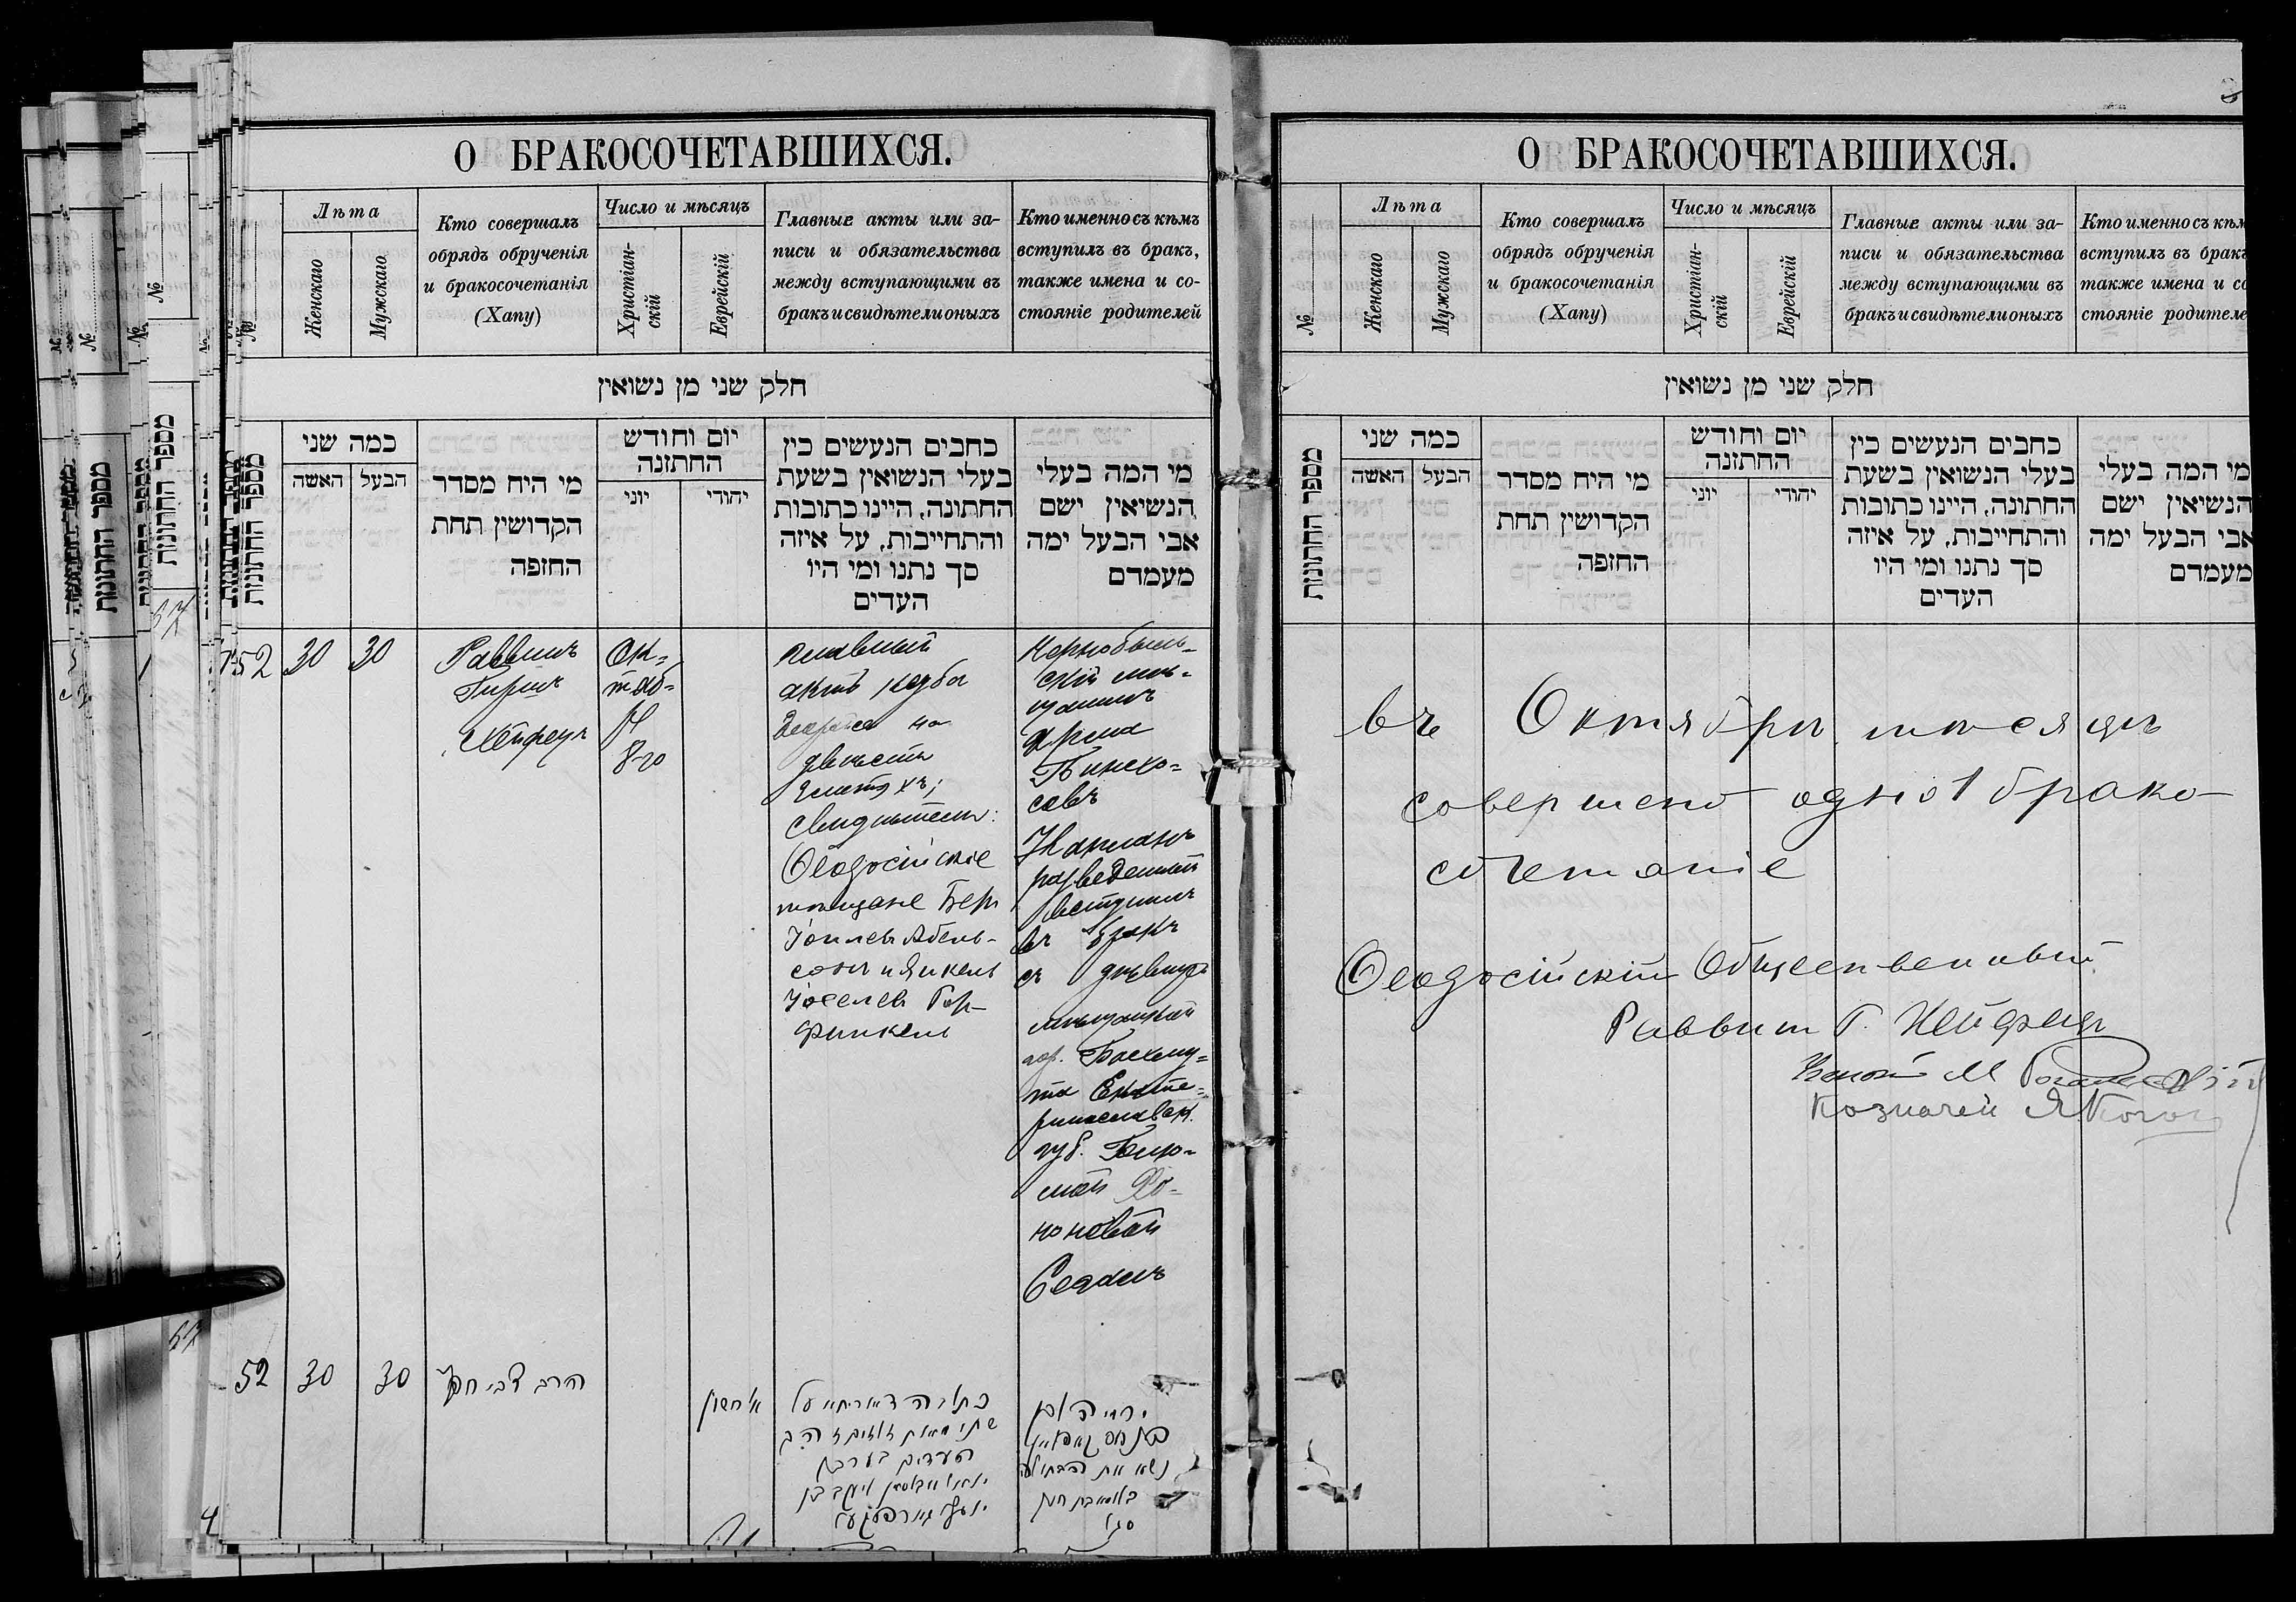 О БРАКОСОЧЕТАВШИХСЯ.
№
Лѣта
Женскаго
Мужскаго
Кто совершалъ
обрядъ обрученія
и бракосочетанія
(Хапу)
Число и мѣсяцъ
Христіан-
скій
Еврейскій
Главные акты или за-
писи и обязательства
между вступающими въ
бракъ и свидѣтели оныхъ
Кто именно съ кѣмъ
вступилъ въ бракъ,
также имена и со-
стояніе родителей
חלק שני מן נשואין
מספר החתונות
כמה שני
האשה
הבעל
מי היח מסדר
הקדושין תחת
החזפה
יום וחודש
החתזנה
יוני
יהודי
כחבים הנעשים כין
בעלי הנשואין בשעת
החתונה, היינו כתובות
והתחייבות, על איזה
סך נתנו ומי היו
העדים
מי המה בעלי
הנשיאין ישם
אבי הבעל ימה
מעמדם
52
30
30
Раввинъ
Гиршъ
Хейфецъ
Ок-
тяб-
8го
главный
актъ
на
двѣсти
злотыхъ;
свидѣтели:
Ѳеодосійскіе
мѣщане Беръ
Абель-
сонъ и Янкель
Іоселев Гар-
финкель
Чернобыль-
скій мѣ-
щанинъ
Пинхо-
совъ
Капланъ
разведенный
вступилъ
въ бракъ
съ дѣвицей
мѣщанкой
гор. Бахму-
та Екате-
ринославск.
губ.
Хо-
новой
52
30
30
הרב צבי חפץ
א׳ חשון
כתובה דאריתא על
שתי מאות זוזים זהב
העדים בער בן
יואל אבלסאן ויעקב בן
יוסף גארפינקעל
ירמיה בן
פנחס קאפלאן
נשא את הבתולה
О БРАКОСОЧЕТАВШИХСЯ.
№
Лѣта
Женскаго
Мужскаго
Кто совершалъ
обрядъ обрученія
и бракосочетанія
(Хапу)
Число и мѣсяцъ
Христіан-
скій
Еврейскій
Главные акты или за-
писи и обязательства
между вступающими въ
бракъ и свидѣтели оныхъ
Кто именно съ кѣм
вступилъ въ бракъ
также имена и со
стояніе родителе
חלק שני מן נשואין
מספר החתונות
כמה שני
האשה
הבעל
מי היח מסדר
הקדושין תחת
החזפה
יום וחודש
החתזנה
יוני
יהודי
כחבים הנעשים כין
בעלי הנשואין בשעת
החתונה, היינו כתובות
והתחייבות, על איזה
סך נתנו ומי היו
העדים
מי המה בעלי
הנשיאין ישם
אבי הבעל ימה
מעמדם
въ Октябрѣ мѣсяцѣ
совершено одно 1 брако-
сочетаніе
Ѳеодосійскій Общественный
Раввинъ Г. Хейфецъ
М
Казначей Я. Коган